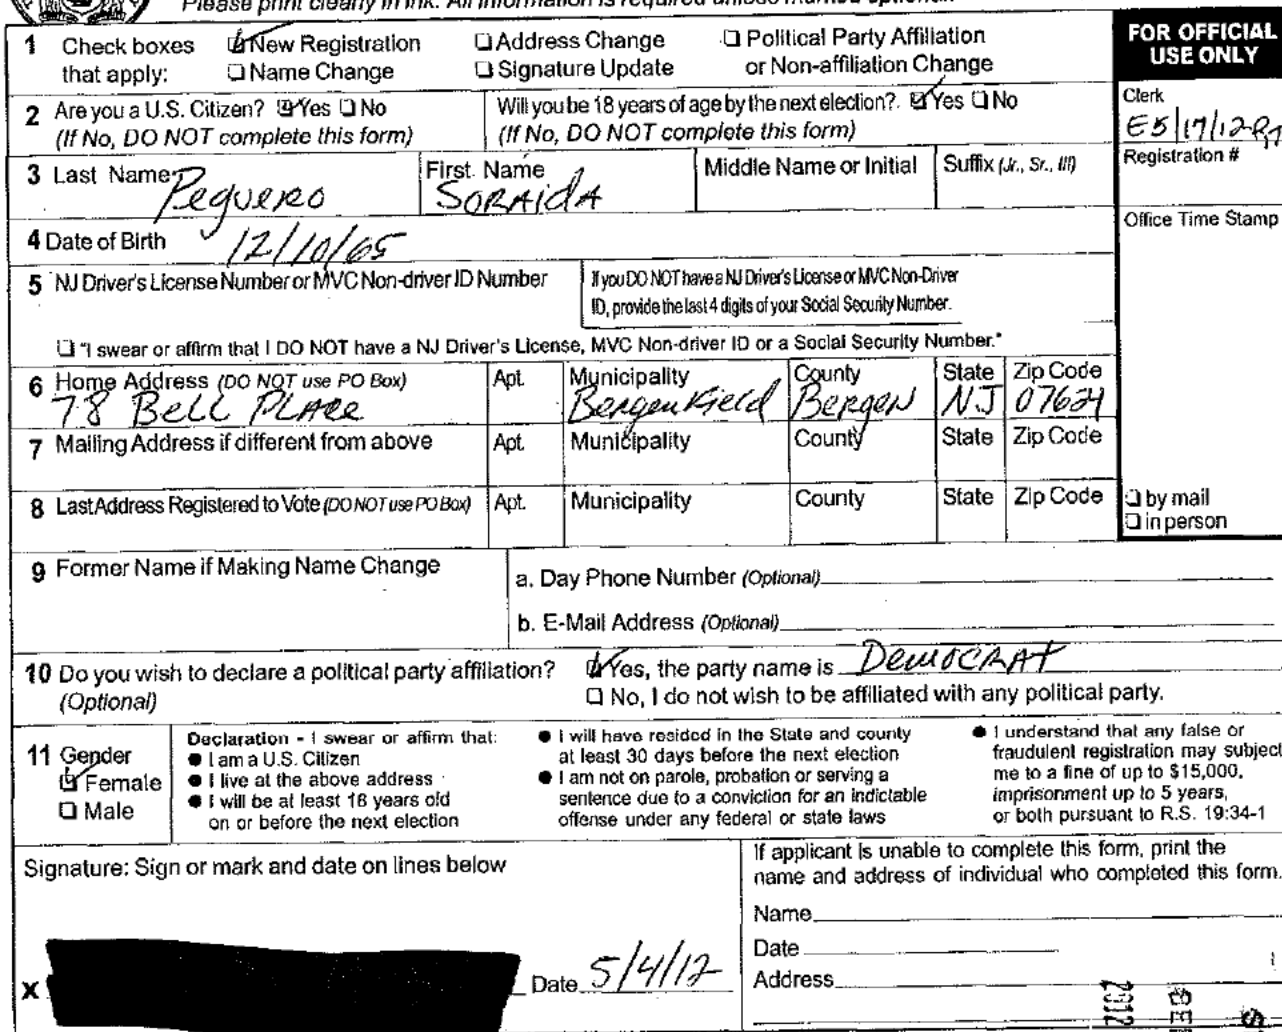 Please print clearly in ink. All information is required unless marked optional.
1 Check boxes that apply: New Registration Address Change Political Party Affiliation or Non-affiliation Change
Name Change Signature Update
FOR OFFICIAL USE ONLY
2 Are you a U.S. Citizen? Yes No
(If No, DO NOT complete this form)
Will you be 18 years of age by the next election? Yes No
(If No, DO NOT complete this form)
Clerk
E5/17/12
Registration #
Office Time Stamp
3 Last Name Peguero
First Name SORAidA
Middle Name or Initial
Suffix (Jr., Sr., III)
4 Date of Birth 12/10/65
5 NJ Driver's License Number or MVC Non-driver ID Number
If you DO NOT have a NJ Driver's License or MVC Non-Driver
ID, provide the last 4 digits of your Social Security Number.
"I swear or affirm that I DO NOT have a NJ Driver's License, MVC Non-driver ID or a Social Security Number."
6 Home Address (DO NOT use PO Box) Apt. Municipality County State Zip Code
78 Bell PLAce Bergenfield Bergen NJ 07621
7 Mailing Address if different from above Apt. Municipality County State Zip Code
8 Last Address Registered to Vote (DO NOT use PO Box) Apt. Municipality County State Zip Code
by mail
in person
9 Former Name if Making Name Change
a. Day Phone Number (Optional)
b. E-Mail Address (Optional)
10 Do you wish to declare a political party affiliation?
(Optional)
Yes, the party name is DemocRAt
No, I do not wish to be affiliated with any political party.
11 Gender
Female
Male
Declaration - I swear or affirm that:
● I am a U.S. Citizen
● I live at the above address
● I will be at least 18 years old
on or before the next election
● I will have resided in the State and county
at least 30 days before the next election
● I am not on parole, probation or serving a
sentence due to a conviction for an indictable
offense under any federal or state laws
● I understand that any false or
fraudulent registration may subject
me to a fine of up to $15,000,
imprisonment up to 5 years,
or both pursuant to R.S. 19:34-1
Signature: Sign or mark and date on lines below
X Date 5/4/12
If applicant is unable to complete this form, print the
name and address of individual who completed this form.
Name
Date
Address
2012